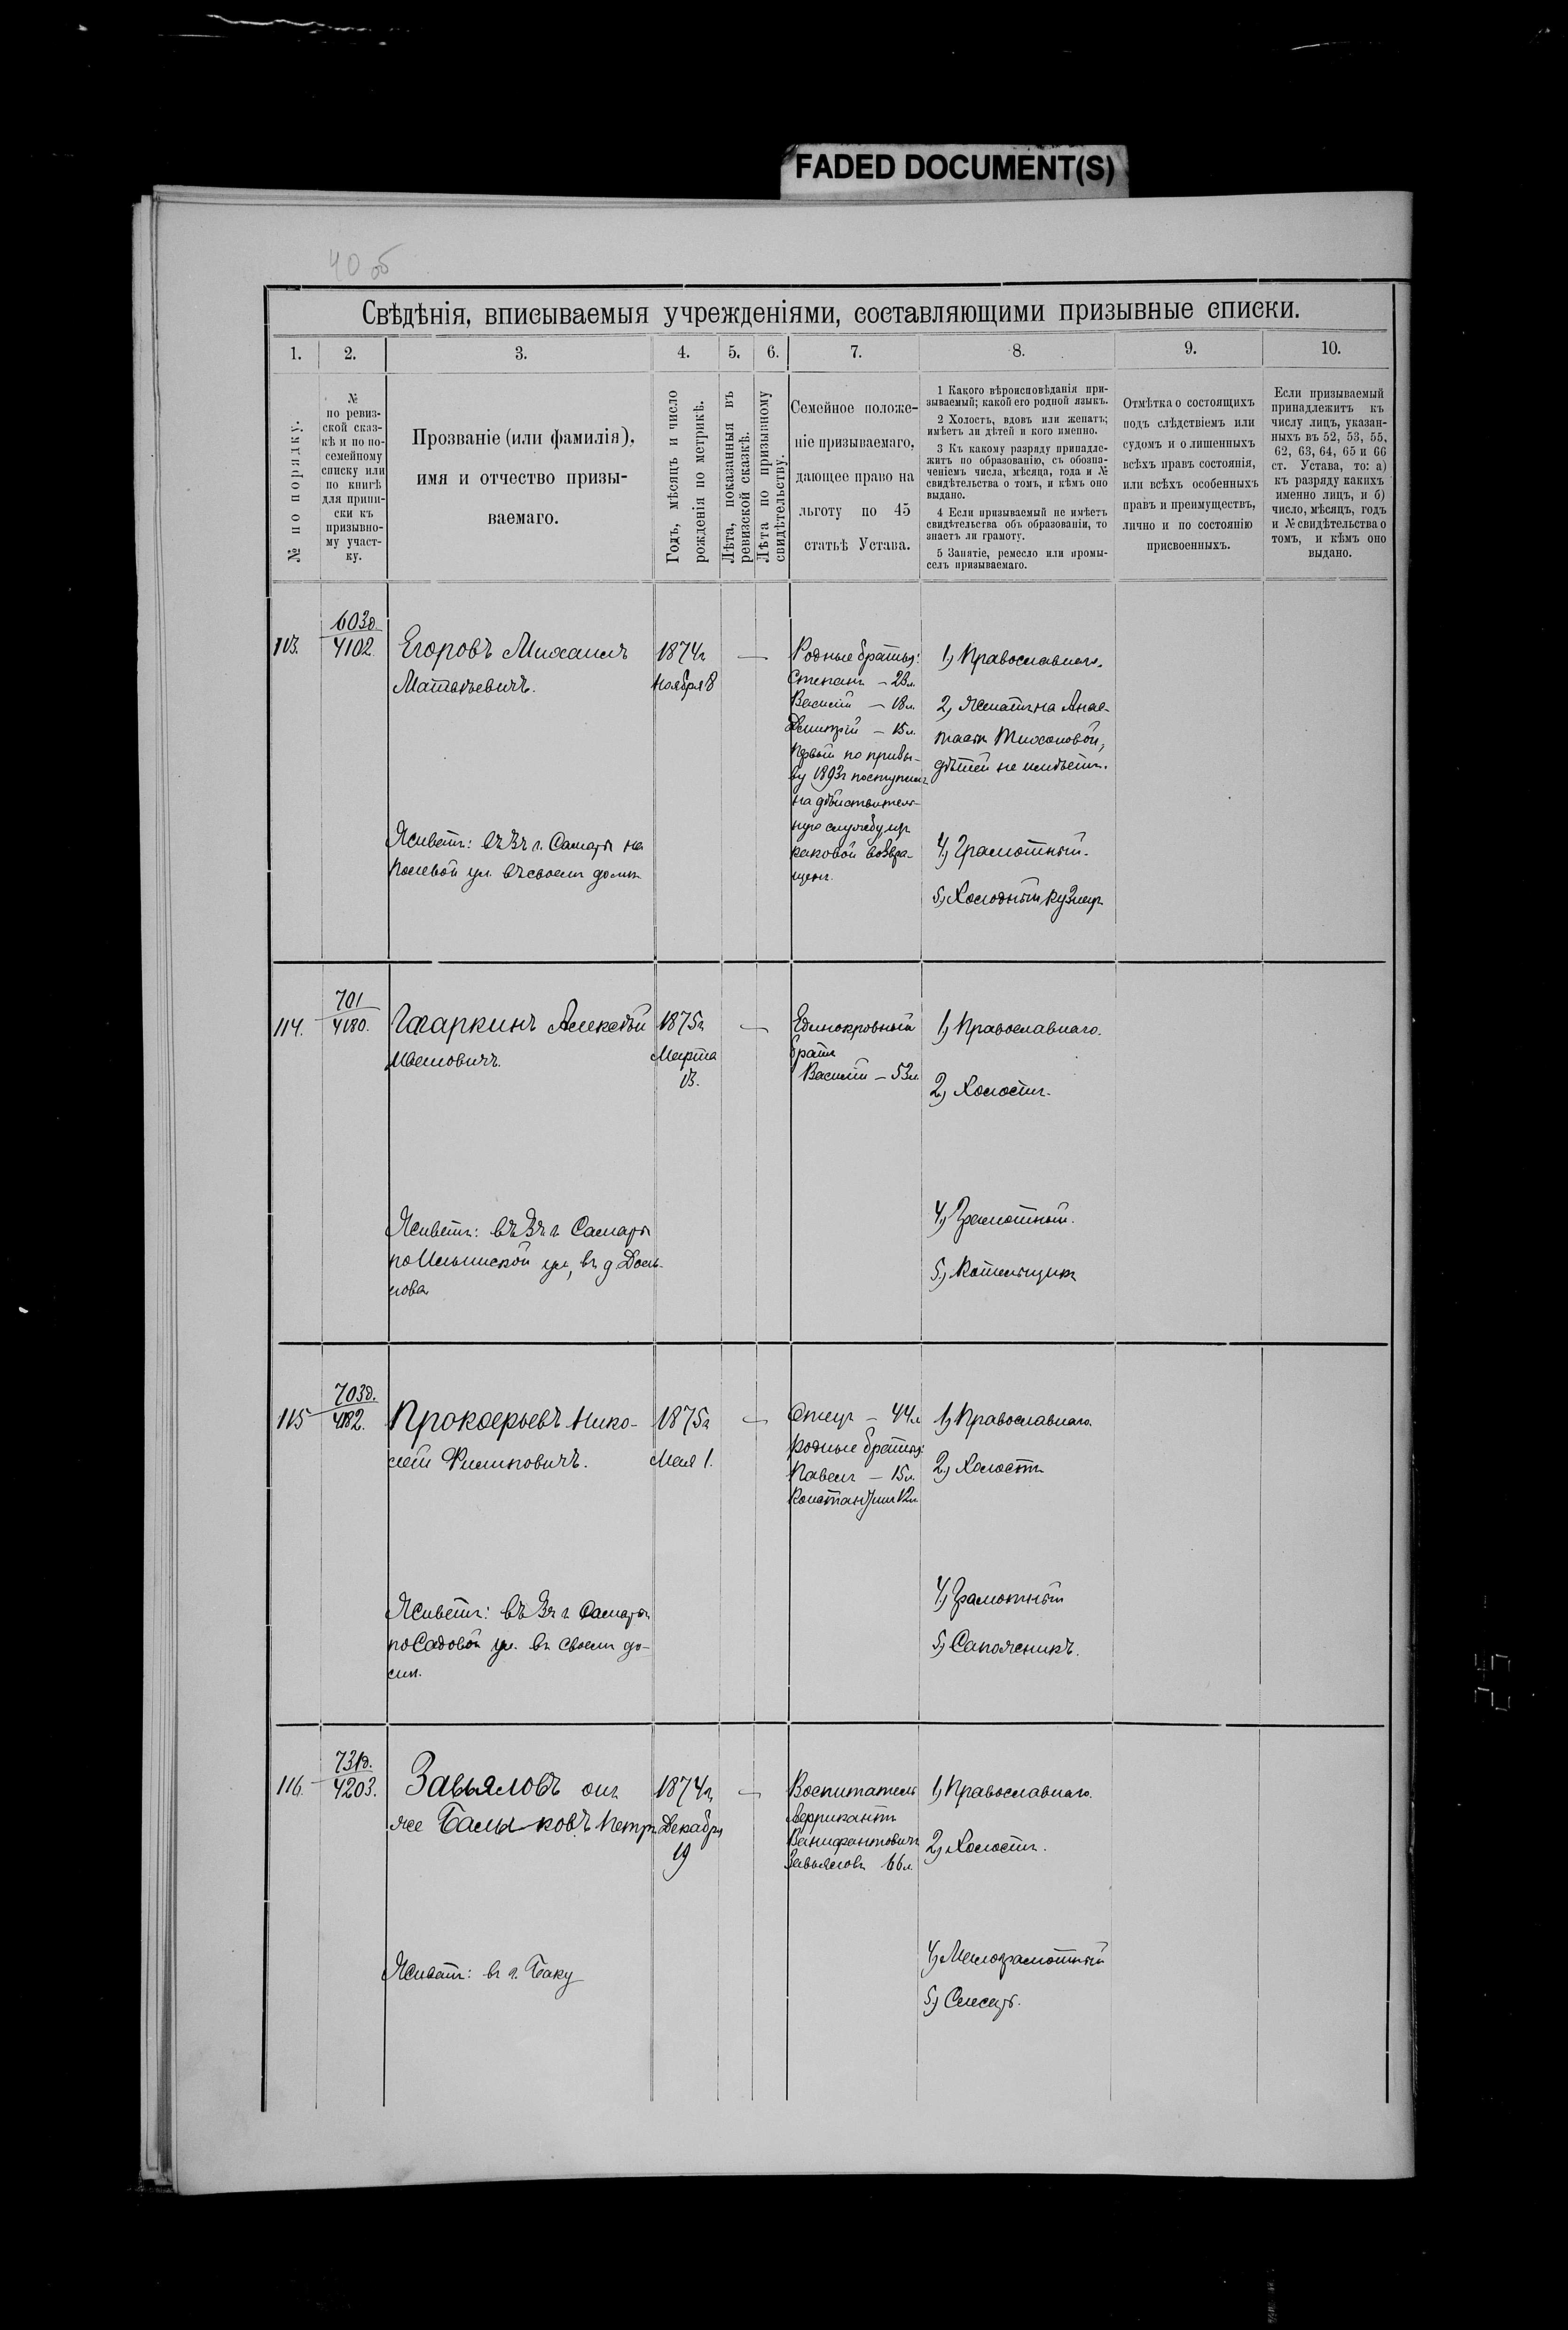 FADED DOCUMENT(S)
40 об
Свѣдѣнія, вписываемыя учрежденіями, составляющими призывные списки.
1. 2. 3. 4. 5. 6. 7. 8. 9. 10.
№ по порядку.
№
по ревиз-
ской сказ-
кѣ и по по-
семейному
списку или
по книгѣ
для припи-
ски къ
призывно-
му участ-
ку.
Прозваніе (или фамилія),
имя и отчество призы-
ваемаго.
Годъ, мѣсяцъ и число
рожденія по метрикѣ.
Лѣта, показанныя въ
ревизской сказкѣ.
Лѣта по призывному
свидѣтельству.
Семейное положе-
ніе призываемаго,
дающее право на
льготу по 45
статьѣ Устава.
1 Какого вѣроисповѣданія при-
зываемый; какой его родной языкъ.
2 Холостъ, вдовъ или женатъ;
имѣетъ ли дѣтей и кого именно.
3 Къ какому разряду принадле-
житъ по образованію, съ обозна-
ченіемъ числа, мѣсяца, года и №
свидѣтельства о томъ, и кѣмъ оно
выдано.
4 Если призываемый не имѣетъ
свидѣтельства объ образованіи, то
знаетъ ли грамоту.
5 Занятіе, ремесло или промы-
селъ призываемаго.
Отмѣтка о состоящихъ
подъ слѣдствіемъ или
судомъ и о лишенныхъ
всѣхъ правъ состоянія,
или всѣхъ особенныхъ
правъ и преимуществъ,
лично и по состоянію
присвоенныхъ.
Если призываемый
принадлежитъ къ
числу лицъ, указан-
ныхъ въ 52, 53, 55,
62, 63, 64, 65 и 66
ст. Устава, то: а)
къ разряду какихъ
именно лицъ, и б)
число, мѣсяцъ, годъ
и № свидѣтельства о
томъ, и кѣмъ оно
выдано.
113.
603д.
4102
Егоровъ Михаилъ
Матвѣевичъ.
Живетъ: въ 3 ч г. Самары на
Полевой ул. въ своемъ домѣ
1874г
Ноября 8
—
Родные братья:
Степанъ — 23л.
Василій — 18л.
Дмитрій — 15л.
Первый по призы-
ву 1893г поступилъ
на дѣйствитель-
ную службу изъ
каковой возвра-
щенъ.
1) Православнаго.
2) Женатъ на Анас-
тасіи Тихоновой,
дѣтей не имѣетъ.
4) Грамотный.
5) Холодный кузнецъ
114.
701
4180.
Алексѣй
Ивановичъ.
Живетъ: въ 3 ч г Самары
по Ильинской ул, въ д
1875г
Марта
13.
—
Единокровный
братъ
Василій — 53л.
1) Православнаго.
2) Холостъ.
4) Грамотный.
5) Котельщикъ
115
703д.
4182.
Прокофьевъ Нико-
лай Филиповичъ.
Живетъ: въ 3 ч г Самары
по Садовой ул. въ своемъ до-
мѣ.
1875г
Мая 1.
—
Отецъ — 44л
Родные братья:
Павелъ — 15л.
Константинъ 12л
1) Православнаго.
2) Холостъ
4) Грамотный
5) Сапожникъ.
116.
731д.
4203.
Завьяловъ онъ
же Балыковъ Петръ
Живетъ: въ г. Баку
1874г
Декабря
19
—
Воспитатель
Завьяловъ 66л.
1) Православнаго.
2) Холостъ.
4) Малограмотный
5) Слесарь.